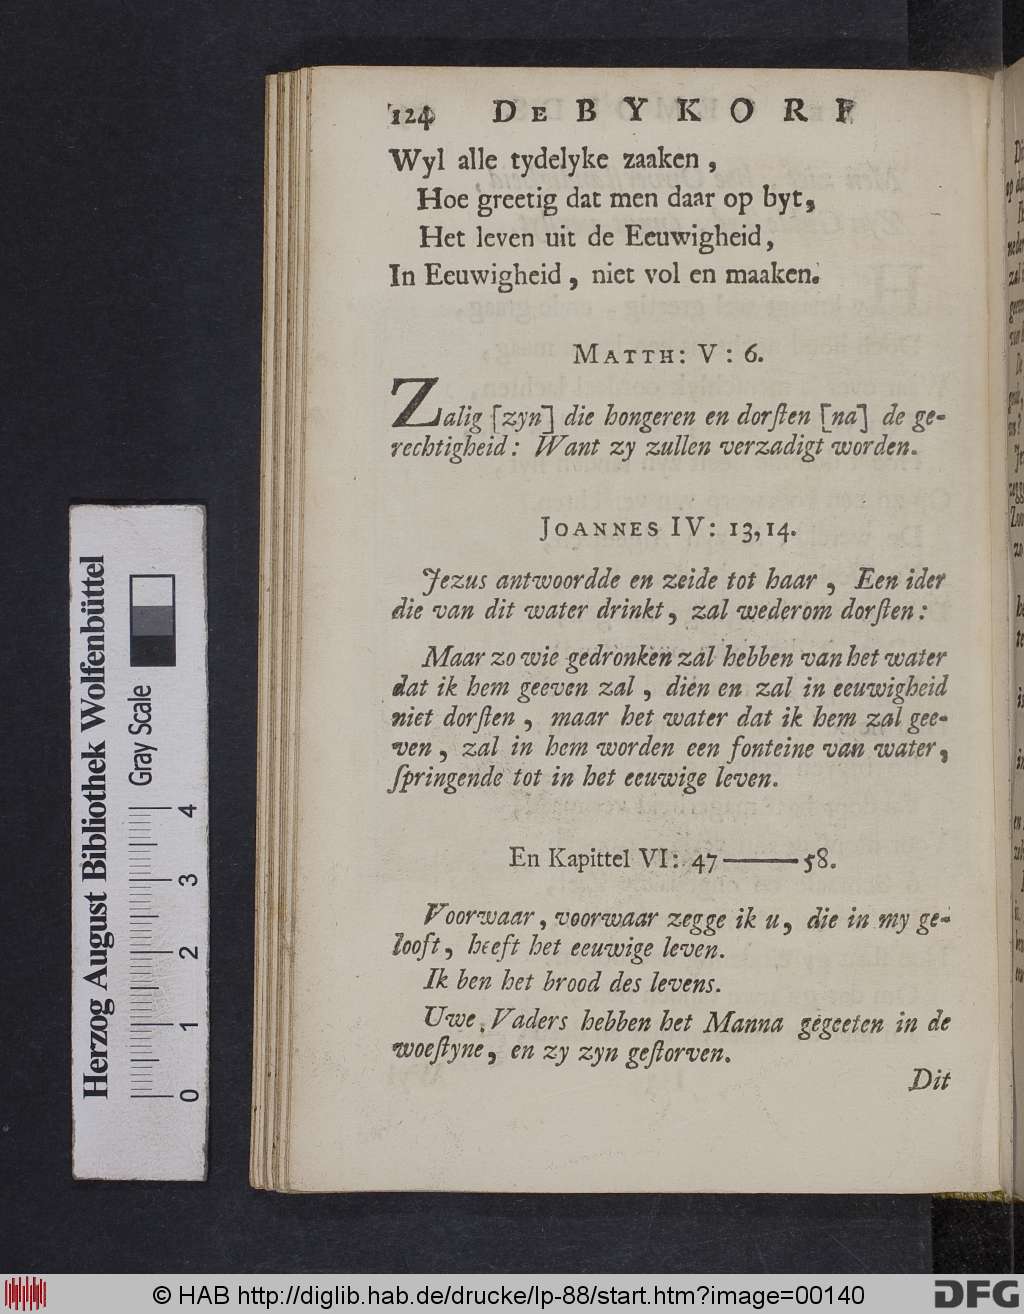 124 DE BYKORF
Wyl alle tydelyke zaaken,
Hoe greetig dat men daar op byt,
Het leven uit de Eeuwigheid,
In Eeuwigheid, niet vol en maaken.
MATTH: V: 6.
Zalig [zyn] die hongeren en dorſten [na] de ge-
rechtigheid: Want zy zullen verzadigt worden.
JOANNES IV: 13, 14.
Jezus antwoordde en zeide tot haar, Een ider
die van dit water drinkt, zal wederom dorſten:
Maar zo wie gedronken zal hebben van het water
dat ik hem geeven zal, dien en zal in eeuwigheid
niet dorſten, maar het water dat ik hem zal gee-
ven, zal in hem worden een fonteine van water,
ſpringende tot in het eeuwige leven.
En Kapittel VI: 47——58.
Voorwaar, voorwaar zegge ik u, die in my ge-
looft, heeft het eeuwige leven.
Ik ben het brood des levens.
Uwe Vaders hebben het Manna gegeeten in de
woeſtyne, en zy zyn geſtorven.
Dit
Herzog August Bibliothek Wolfenbüttel
Gray Scale
0 1 2 3 4
© HAB http://diglib.hab.de/drucke/lp-88/start.htm?image=00140
DFG